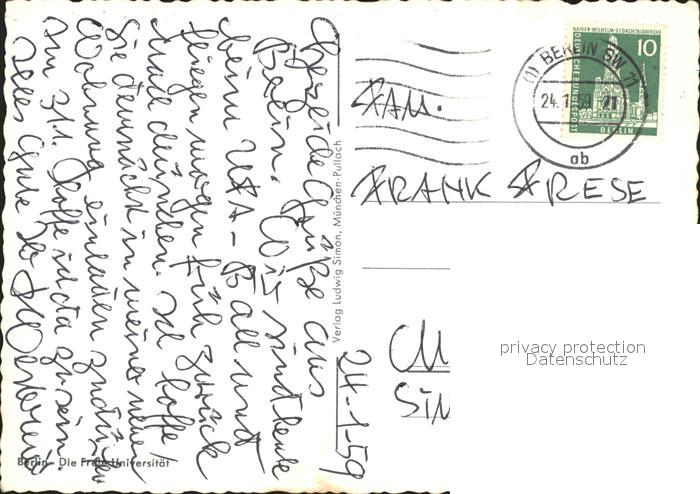 Herzliche Grüße aus
Berlin. Wir sind heute
beim USA-Ball und
fliegen morgen früh zurück
nach München. Ich hoffe
Sie demnächst in meine neue
Wohnung einladen zu dürfen.
Am 31. hoffe ich da zu sein.
Alles Gute Ihr
24-1-59
FAM.
FRANK FRESE
M
SIN
KAISER-WILHELM-GEDÄCHTNISKIRCHE
10
DEUTSCHE BUNDESPOST
BERLIN
(1) BERLIN SW 11
24.1.59-21
ab
Verlag Ludwig Simon, München-Pullach
Berlin - Die Freie Universität
privacy protection
Datenschutz